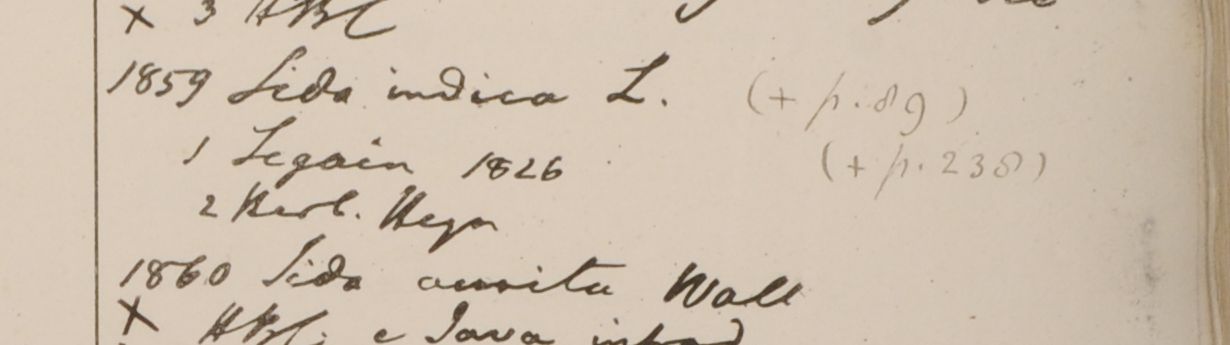 x 3 HBC
1859 Sida indica L. (+ p. 89)
1 Segain 1826 (+ p. 238)
2 Herb. Heyn
1860 Sida aurita Wall
x HBC. e Java introd